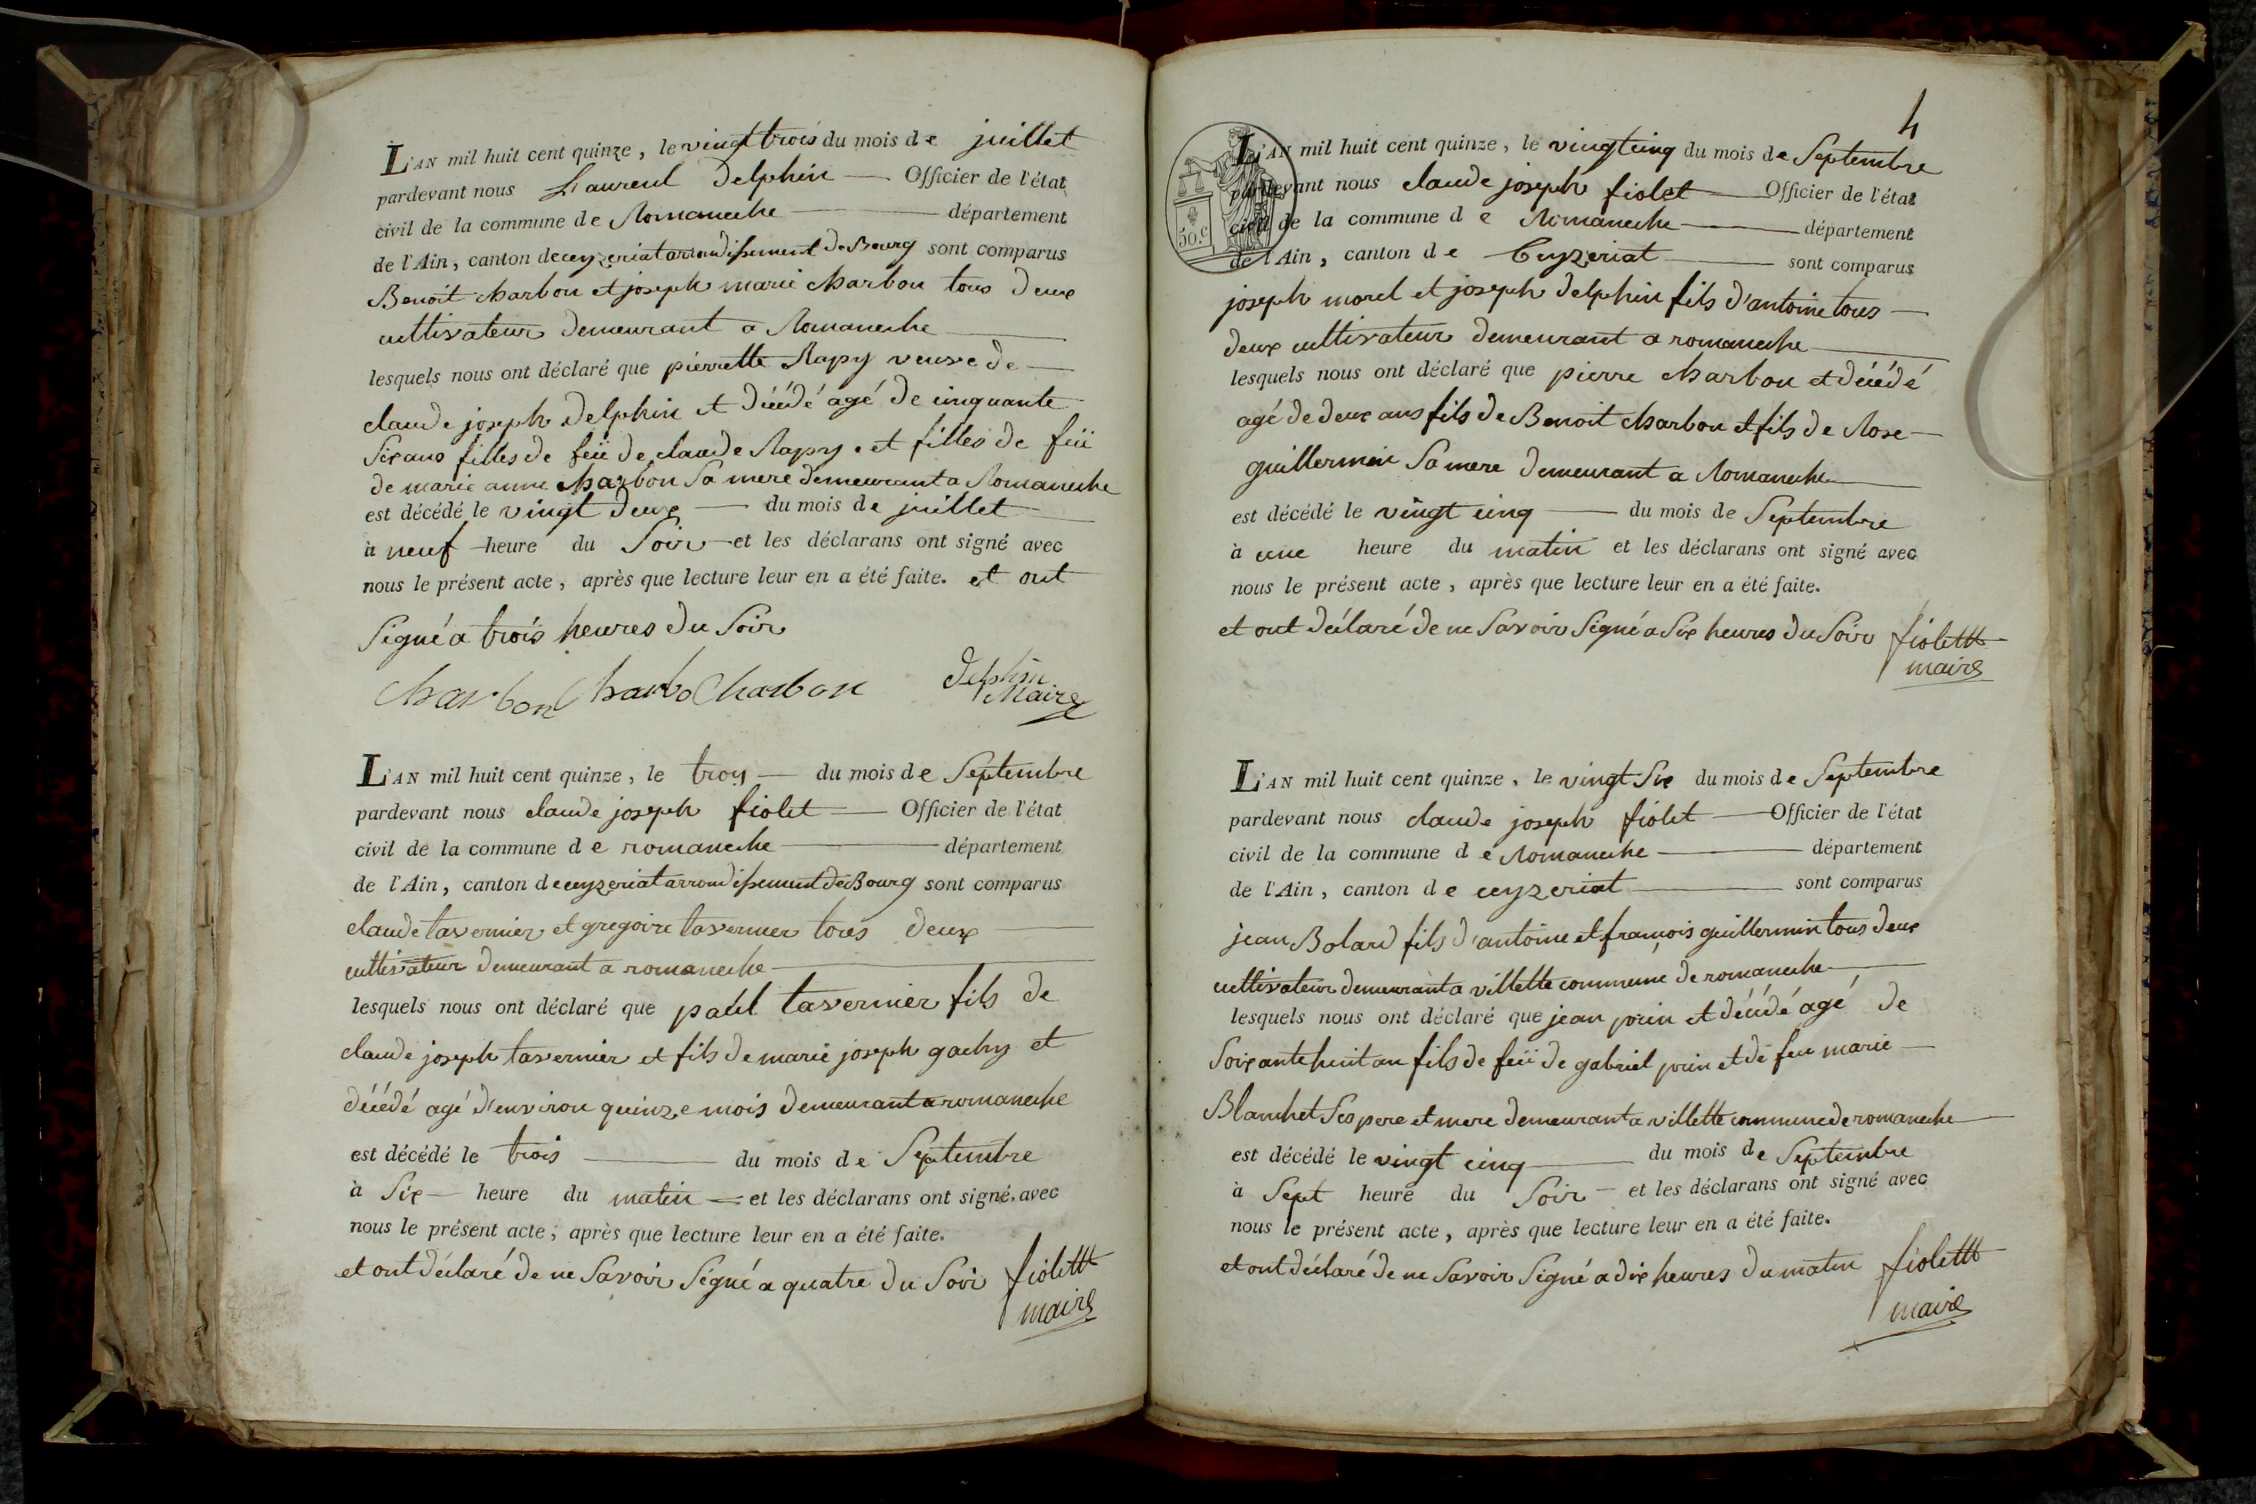 L'AN mil huit cent quinze, le vingt trois du mois de juillet
pardevant nous Laurent Delphin Officier de l'état
civil de la commune de Romaneche département
de l'Ain, canton de ceyzeriat arrondissement de Bourg sont comparus
Benoit charbon et joseph marie charbon tous deux
cultivateur demeurant a Romaneche
lesquels nous ont déclaré que pierrette Rapy veuve de
claude joseph delphin et décédé agé de cinquante
six ans filles de feü de claude Rapy et filles de feü
de marie anne charbon sa mere demeurant a Romaneche
est décédé le vingt deux du mois de juillet
à neuf heure du soir et les déclarans ont signé avec
nous le présent acte, après que lecture leur en a été faite. et ont
signé a trois heures du soir
charbon charbo charbon delphin
Maire
L'AN mil huit cent quinze, le troy du mois de septembre
pardevant nous claude joseph fiolet Officier de l'état
civil de la commune de romaneche département
de l'Ain, canton de ceyzeriat arrondissement de Bourg sont comparus
claude tavernier et gregoire tavernier tous deux
cultivateur demeurant a romaneche
lesquels nous ont déclaré que paul tavernier fils de
claude joseph tavernier et fils de marie joseph gachy et
décédé agé d'environ quinze mois demeurant a romaneche
est décédé le trois du mois de septembre
à six heure du matin et les déclarans ont signé avec
nous le présent acte, après que lecture leur en a été faite.
et ont déclaré de ne savoir signé a quatre du soir fiolettt
maire
4
L'AN mil huit cent quinze, le vingt cinq du mois de septembre
pardevant nous claude joseph fiolet Officier de l'état
civil de la commune de Romaneche département
de l'Ain, canton de Ceyzeriat sont comparus
50.c
joseph morel et joseph delphin fils d'antoine tous
deux cultivateur demeurant a romaneche
lesquels nous ont déclaré que pierre charbon et décédé
agé de deux ans fils de Benoit charbon et fils de Rose
guillermin sa mere demeurant a Romaneche
est décédé le vingt cinq du mois de septembre
à une heure du matin et les déclarans ont signé avec
nous le présent acte, après que lecture leur en a été faite.
et ont déclaré de ne savoir signé a six heures du soir fiolettt
maire
L'AN mil huit cent quinze, le vingt six du mois de septembre
pardevant nous claude joseph fiolet Officier de l'état
civil de la commune de Romaneche département
de l'Ain, canton de ceyzeriat sont comparus
jean Bolard fils d'antoine et françois guillermin tous deux
cultivateur demeurant a villette commune de romaneche
lesquels nous ont déclaré que jean et décédé agé de
soixante huit an fils de feü de gabriel et de feu marie
Blanchet ses pere et mere demeurant a villette commune de romaneche
est décédé le vingt cinq du mois de septembre
à sept heure du soir et les déclarans ont signé avec
nous le présent acte, après que lecture leur en a été faite.
et ont déclaré de ne savoir signé a dix heures du matin fiolettt
maire